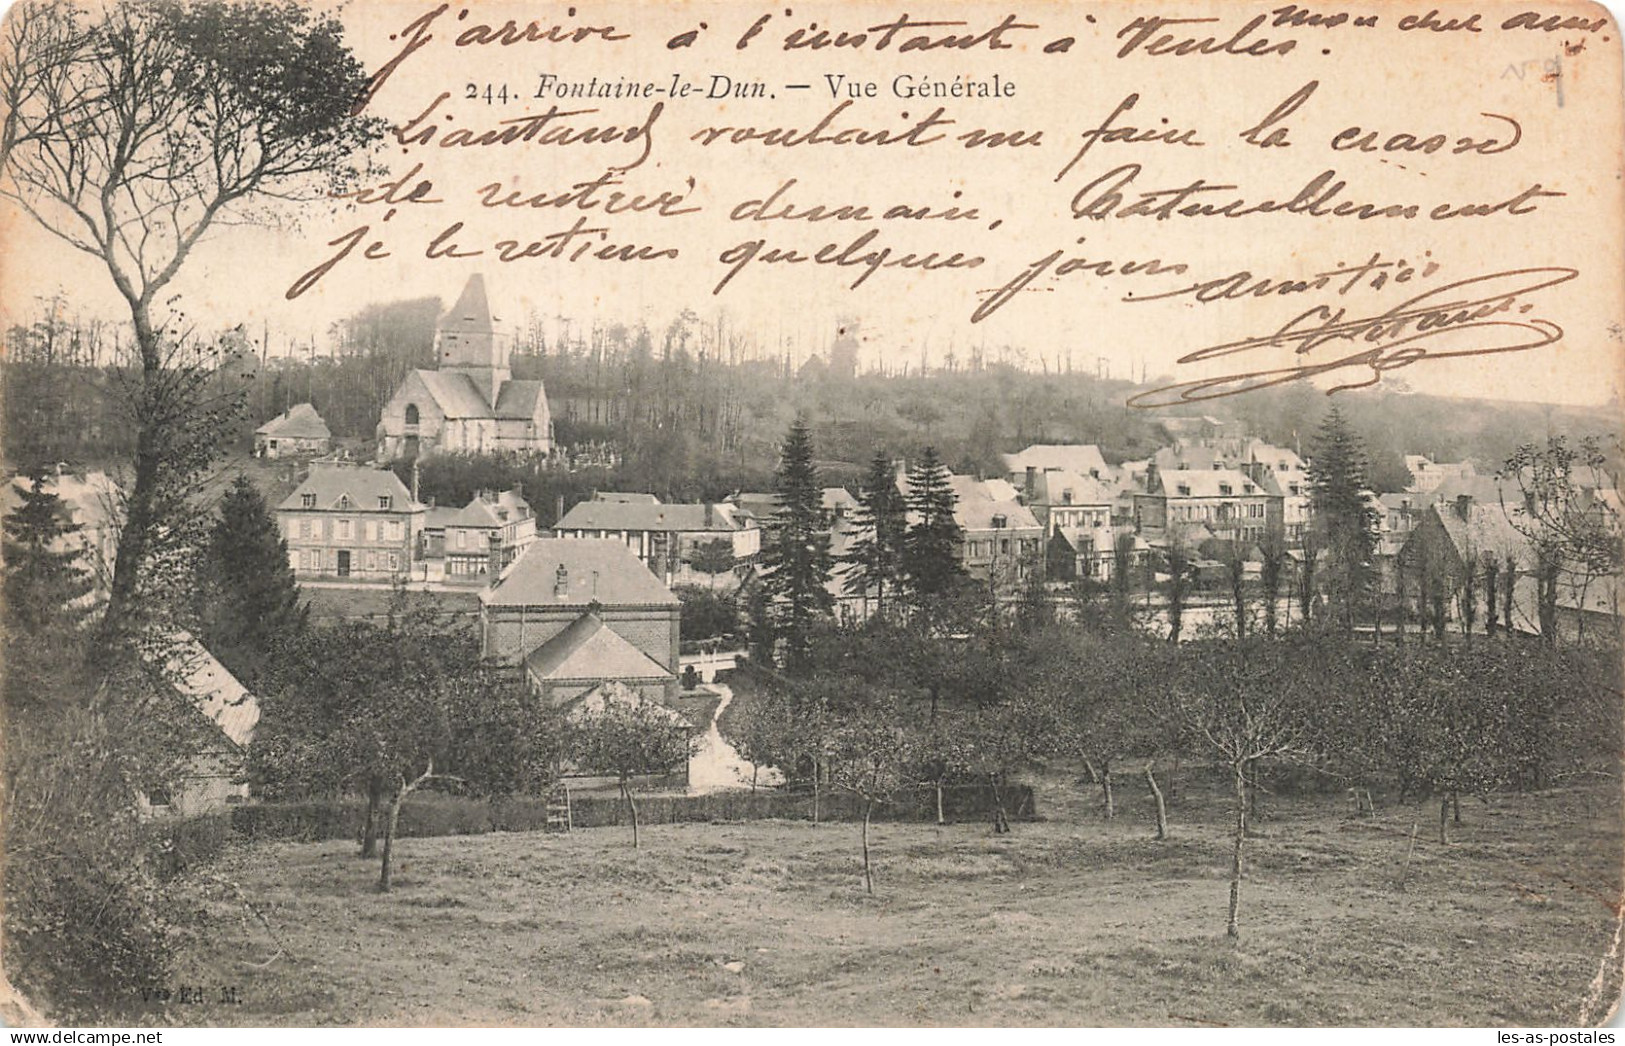 mon cher ami.
J'arrive à l'instant à Veules.
244. Fontaine-le-Dun. — Vue Générale
Liantaud voulait me faire la crasse
de rentrer demain, Naturellement
je le retiens quelques jours
Amitiés
Vve Ed. M.
les-as-postales